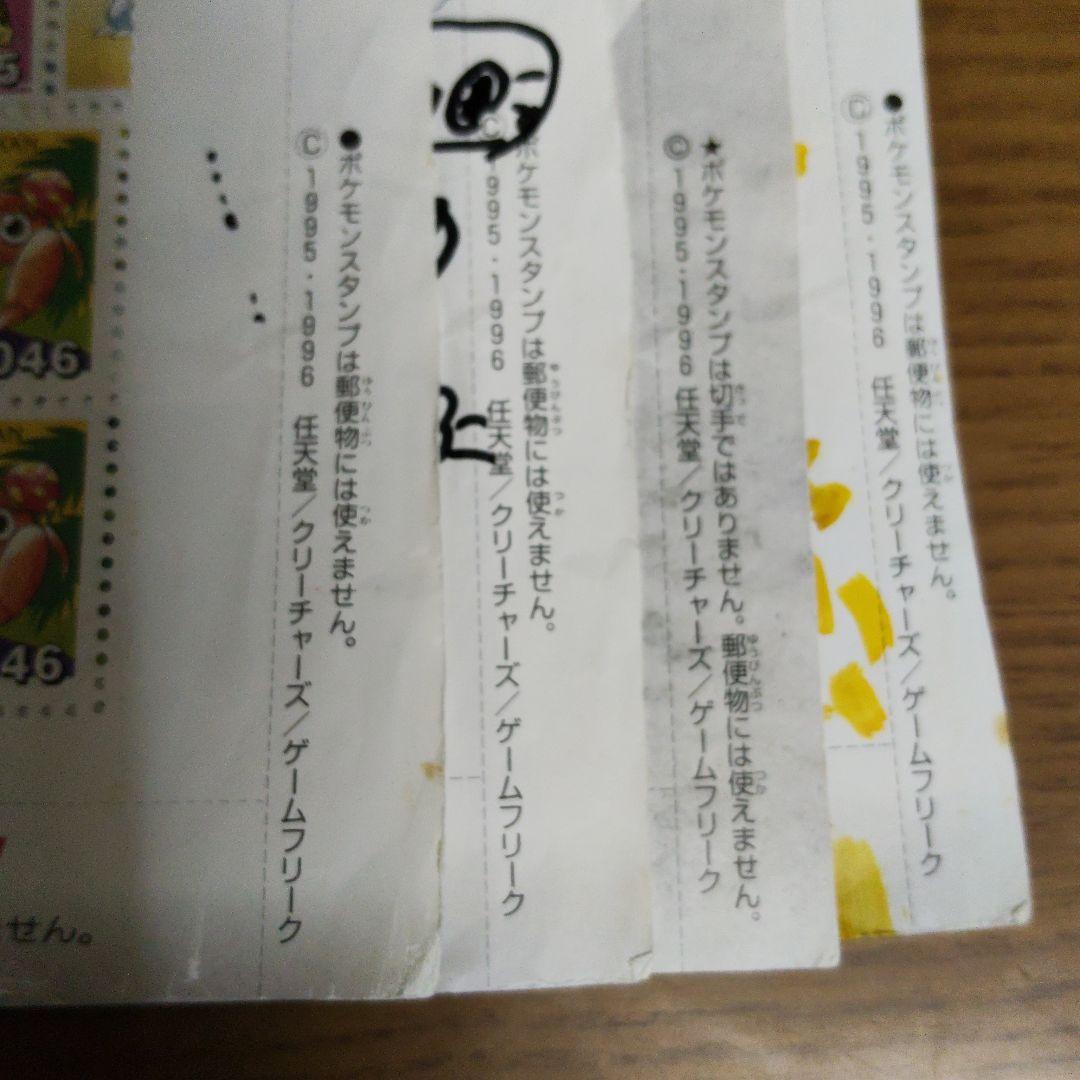 5
AN
046
AN
46
ません。
●ポケモンスタンプは郵便物には使えません。
ゆうびんぶつ
つか
Ⓒ1995・1996 任天堂/クリーチャーズ/ゲームフリーク
ポケモンスタンプは郵便物には使えません。
ゆうびんぶつ
つか
Ⓒ1995・1996 任天堂/クリーチャーズ/ゲームフリーク
★ポケモンスタンプは切手ではありません。郵便物には使えません。
きって
ゆうびんぶつ
つか
©1995・1996 任天堂/クリーチャーズ/ゲームフリーク
●ポケモンスタンプは郵便物には使えません。
ゆうびんぶつ
つか
Ⓒ1995・1996 任天堂/クリーチャーズ/ゲームフリーク